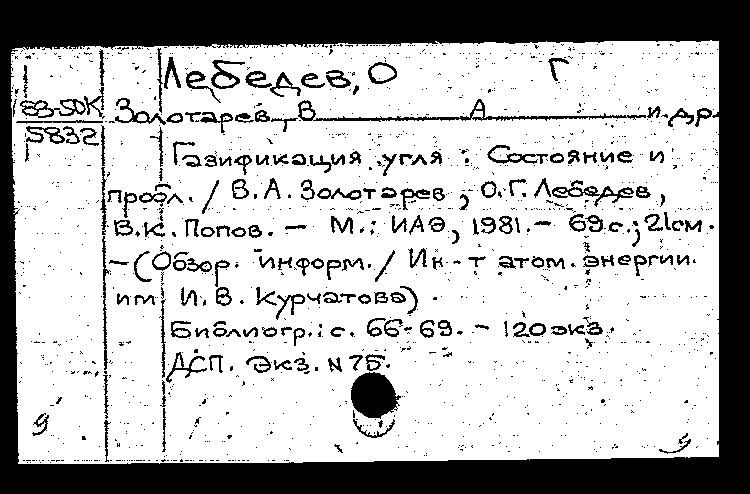 Лебедев, О Г
83-50К
Золотарев, В А и др.
5832
Газификация угля : Состояние и
пробл. / В.А. Золотарев, О.Г. Лебедев,
В.К. Попов. — М.: ИАЭ, 1981. — 69 с.; 21 см.
— (Обзор. информ. / Ин-т атом. энергии
им И.В. Курчатова).
Библиогр.: с. 66-69. — 120 экз.
ДСП. Экз. N 75.
9